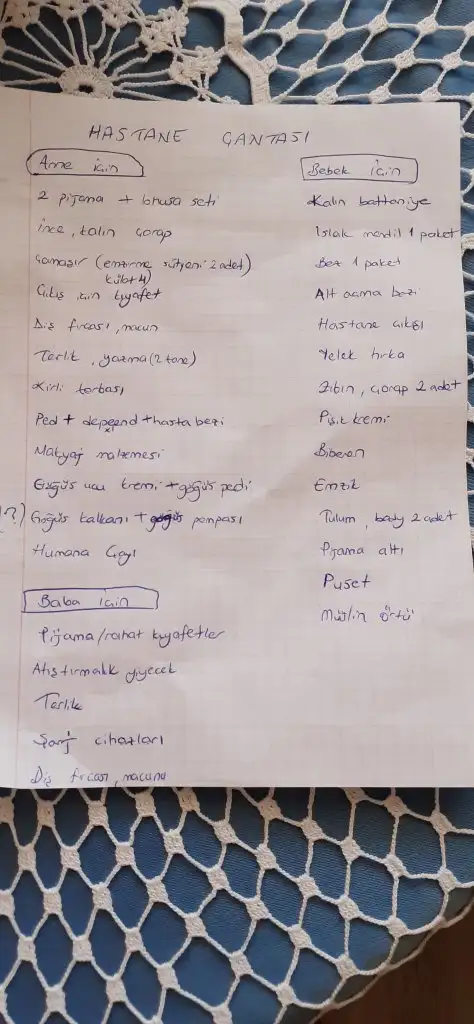 HASTANE ÇANTASI
Anne için
2 pijama + lohusa seti
İnce, kalın çorap
Çamaşır (emzirme sütyeni 2 adet)
külot 4)
Çıkış için kıyafet
Diş fırçası, macun
Terlik, yazma (2 tane)
Kirli torbası
Ped + depend + hasta bezi
Makyaj malzemesi
Göğüs ucu kremi + göğüs pedi
(?) Göğüs kalkanı + göğüs pompası
Humana Çayı
Baba için
Pijama/rahat kıyafetler
Atıştırmalık yiyecek
Terlik
Şarj cihazları
Diş fırçası, macunu
Bebek için
Kalın battaniye
Islak mendil 1 paket
Bez 1 paket
Alt açma bezi
Hastane çıkışı
Yelek hırka
Zıbın, çorap 2 adet
Pişik kremi
Biberon
Emzik
Tulum, body 2 adet
Pijama altı
Puset
Müslin örtü